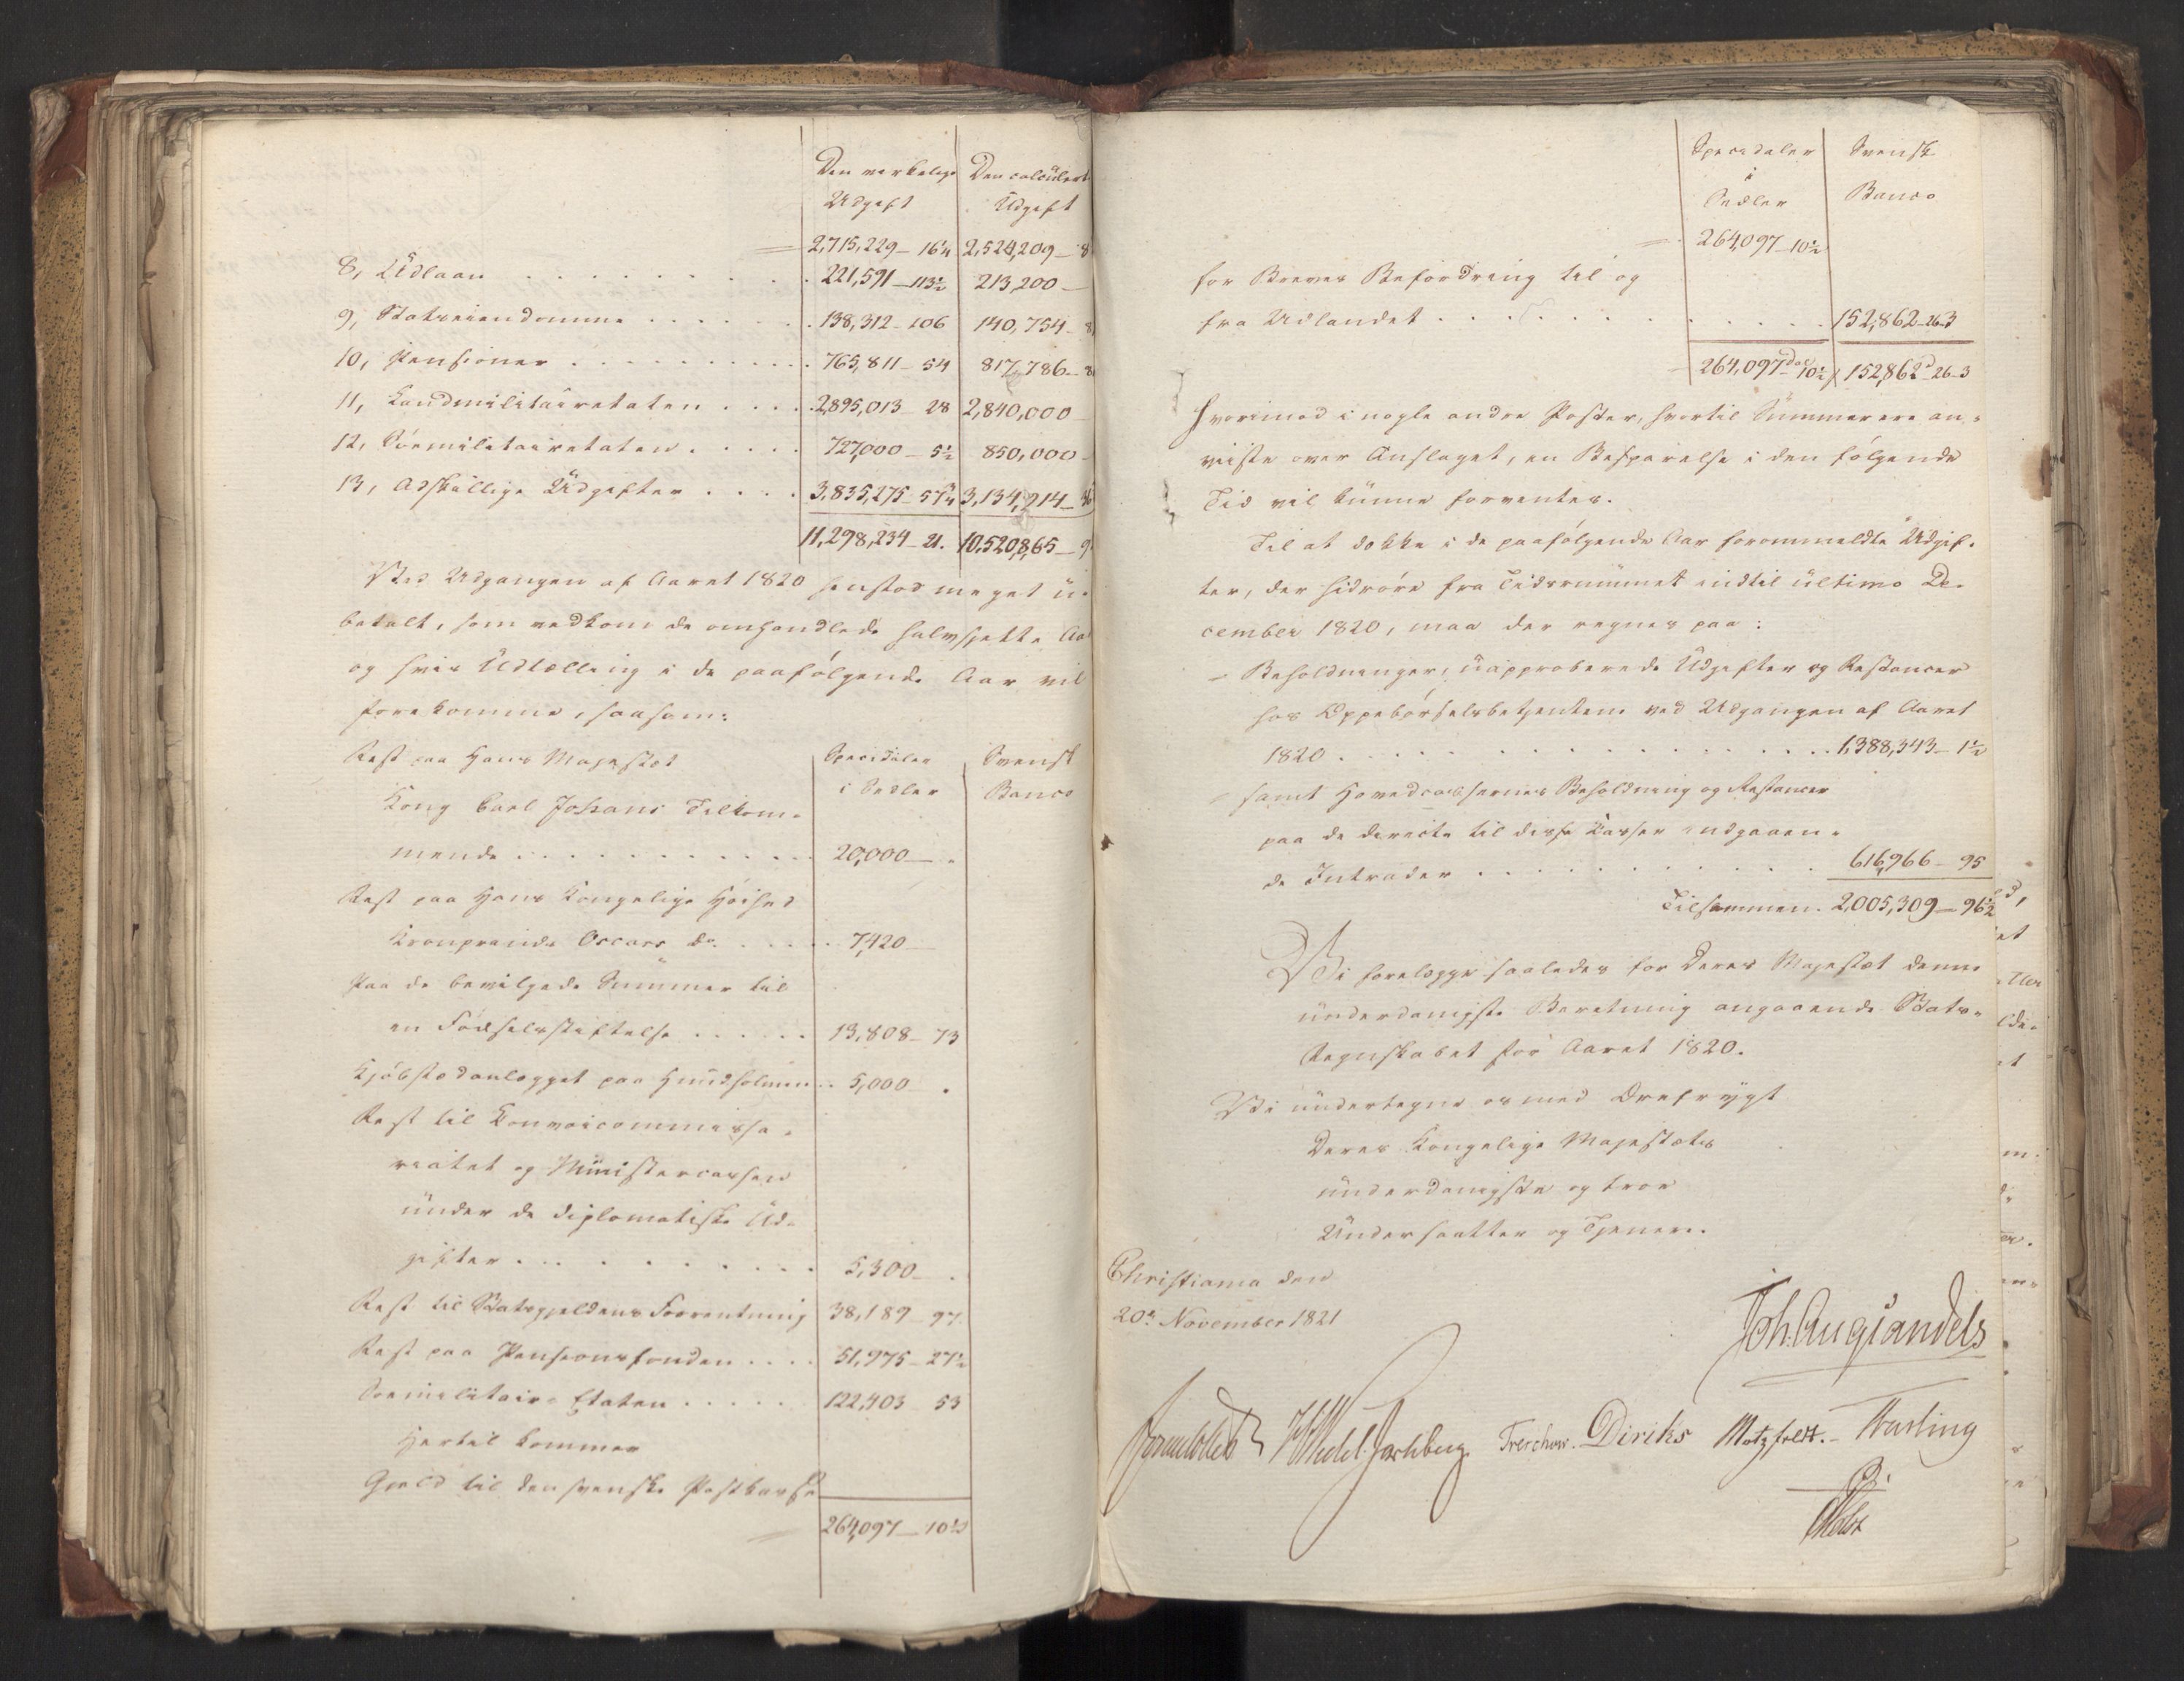 Den virkelige Den calculerte
Udgift Udgift
2,715,229 – 16¼ 2,524,209 – 8
8, Udlaan . . . . . . . . 221,591 – 113½ 213,200 –
9, Statseiendomme . . . . . . 138,312 – 106 140,754 – 8
10, Pensioner . . . . . . . . 765,811 – 54 817,786 – 8
11, Landmilitairetaten . . . . 2,895,013 – 28 2,840,000 –
12, Sömilitairetaten . . . . . 727,000 – 5½ 850,000 –
13, Adskillige Udgifter . . . . 3,835,275 – 57¾ 3,134,214 – 36
11,298,234 – 21. 10,520,865 – 9
Ved Udgangen af Aaret 1820 henstod meget u-
betalt, som vedkom de omhandlede halvsjette Aar
og hvis Udtælling i de paafölgende Aar vil
forekomme, saasom:
Rest paa Hans Majestæt Speciedaler Svensk
Kong Carl Johans Tilkom- i Sedler Banco
mende . . . . . . . . . . 20,000 – „
Rest paa Hans Kongelige Höihed
Kronprinds Oscars do . . . . 7,420 –
Paa de bevilgede Summer til
en Födselsstiftelse . . . . . . 13,808 – 73
Kjöbstedanlægget paa Hundholmen . . 5,000 „
Rest til Convoicommissa-
riatet og Ministercassen
under de diplomatiske Ud-
gifter . . . . . . . . . . 5,300 – .
Rest til Statsgjeldens Forrentning 38,189 – 97
Rest paa Pensionsfonden . . . . 51,975 – 27½
Sömilitair-Etaten . . . . . 122,403 – 53
Hertil kommer
Gjeld til den svenske Postkasse
264,097 – 10½
Speciedaler Svensk
i
Sedler Banco
264,097 – 10½
for Breves Befordring til og
fra Udlandet . . . . . . . . . . 152,862 – 26 – 3
264,097 – 10½ 152,862 – 26 – 3
Hvorimod i nogle andre Poster, hvortil Summer ere an-
viiste over Anslaget, en Besparelse i den fölgende
Tid vil kunne forventes.
Til at dække i de paafölgende Aar forommeldte Udgif-
ter, der hidröre fra Tidsrummet indtil ultimo De-
cember 1820, maa der regnes paa:
– Beholdninger, uapproberede Udgifter og Restancer
hos Oppebörselsbetjentene ved Udgangen af Aaret
1820 . . . . . . . . . . . . . . 1,388,343 – 1½
– samt Hovedcassernes Beholdning og Restancer
paa de directe til disse Casser indgaaen-
de Intrader . . . . . . . . . . 616,966 – 95
Tilsammen. 2,005,309 – 96½
Vi forelægge saaledes for Deres Majestæt denne
underdanigste Beretning angaaende Stats-
Regnskabet for Aaret 1820.
Vi undertegne os med Ærefrygt
Deres Kongelige Majestæts
underdanigste og troe
Undersaatter og Tjenere.
Christiania den
20de November 1821
Joh. Aug Sandels
Sommerhielm HWedel Jarlsberg. Treschow. Diriks Motzfeldt. – Fasting
Holst